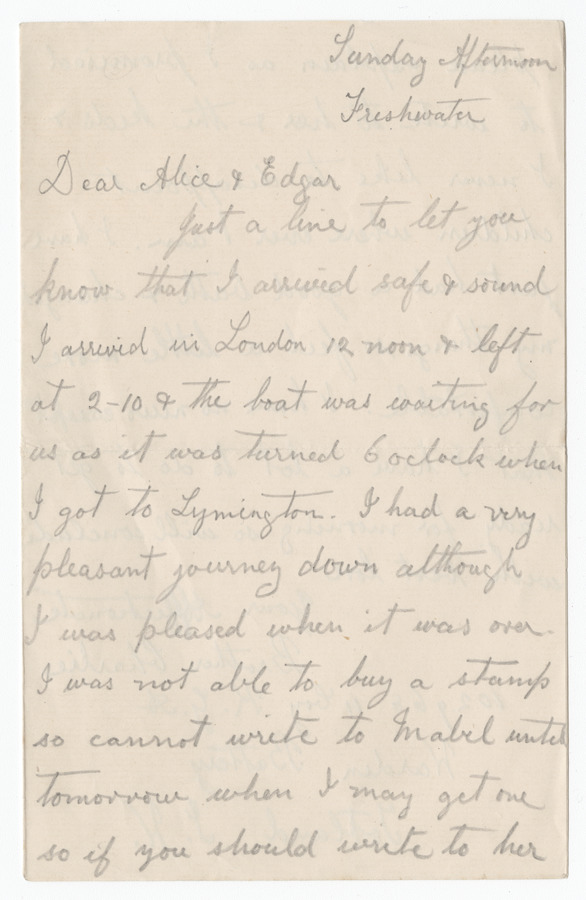 Sunday Afternoon
Freshwater
Dear Alice & Edgar
Just a line to let you
know that I arrived safe & sound
I arrivid in London 12 noon & left
at 2-10 & the boat was waiting for
us as it was turned 6 oclock when
I got to Lymington. I had a very
pleasant journey down although
I was pleased when it was over.
I was not able to buy a stamp
so cannot write to Mabel until
tomorrow when I may get one
so if you should write to her